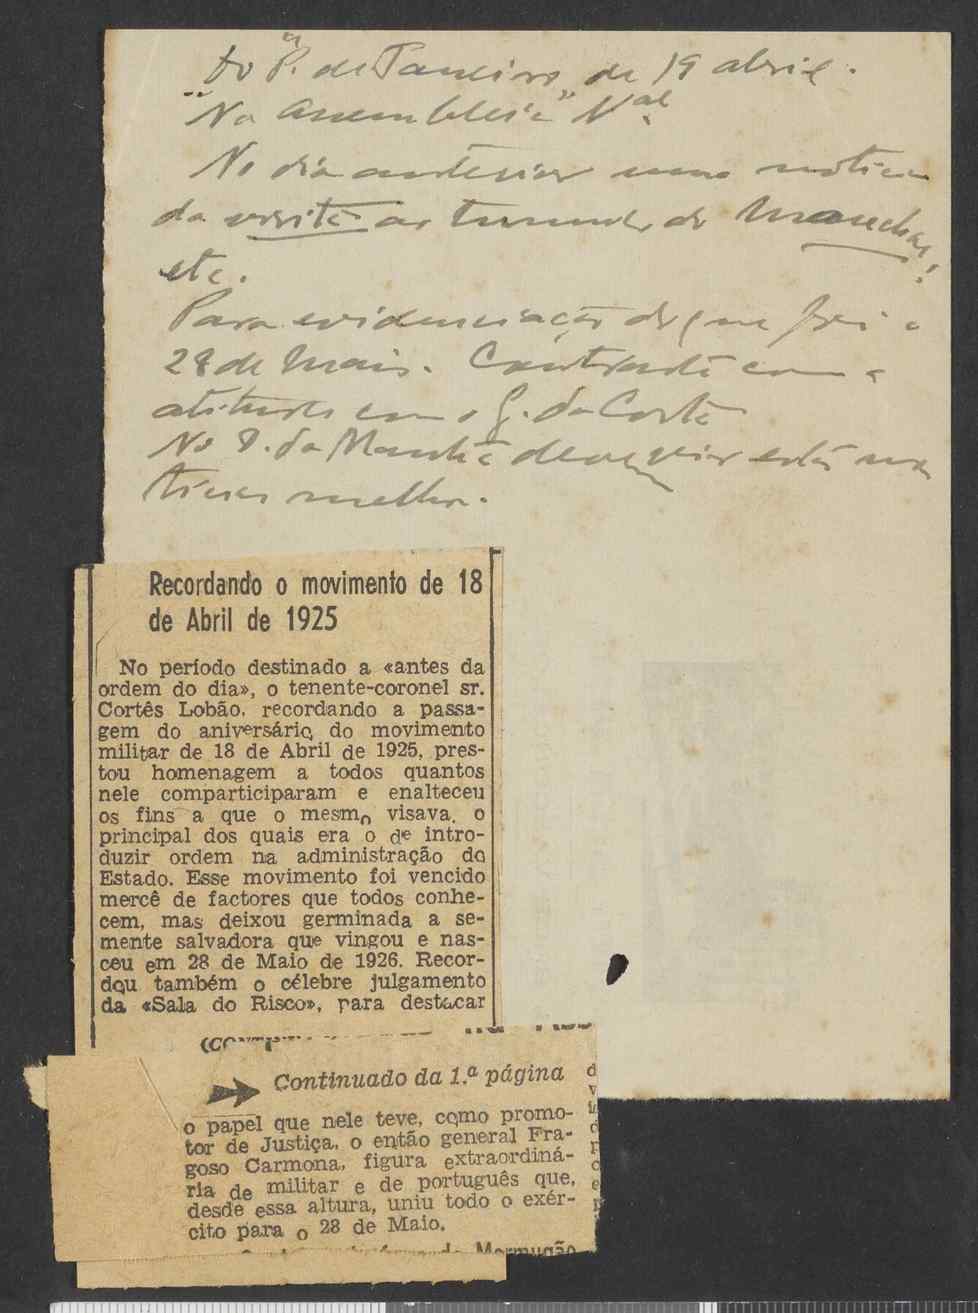 Do "P. de Janeiro, de 19 abril.
"Na Assembleia" N.al
No dia anterior uma notícia
da visita ao tumulo do Marechal,
etc.
Para evidenciação do que foi o
28 de Maio. Contraste com a
atitude com o G. da Costa
No D. da Manhã deve vir esta no
ticia melhor.
Recordando o movimento de 18
de Abril de 1925
No período destinado a «antes da
ordem do dia», o tenente-coronel sr.
Cortês Lobão, recordando a passa-
gem do aniversário do movimento
militar de 18 de Abril de 1925, pres-
tou homenagem a todos quantos
nele comparticiparam e enalteceu
os fins a que o mesmo visava, o
principal dos quais era o de intro-
duzir ordem na administração do
Estado. Esse movimento foi vencido
mercê de factores que todos conhe-
cem, mas deixou germinada a se-
mente salvadora que vingou e nas-
ceu em 28 de Maio de 1926. Recor-
dou também o célebre julgamento
da «Sala do Risco», para destacar
Continuado da 1.ª página
o papel que nele teve, como promo-
tor de Justiça, o então general Fra-
goso Carmona, figura extraordiná-
ria de militar e de português que,
desde essa altura, uniu todo o exér-
cito para o 28 de Maio.
Mormugão